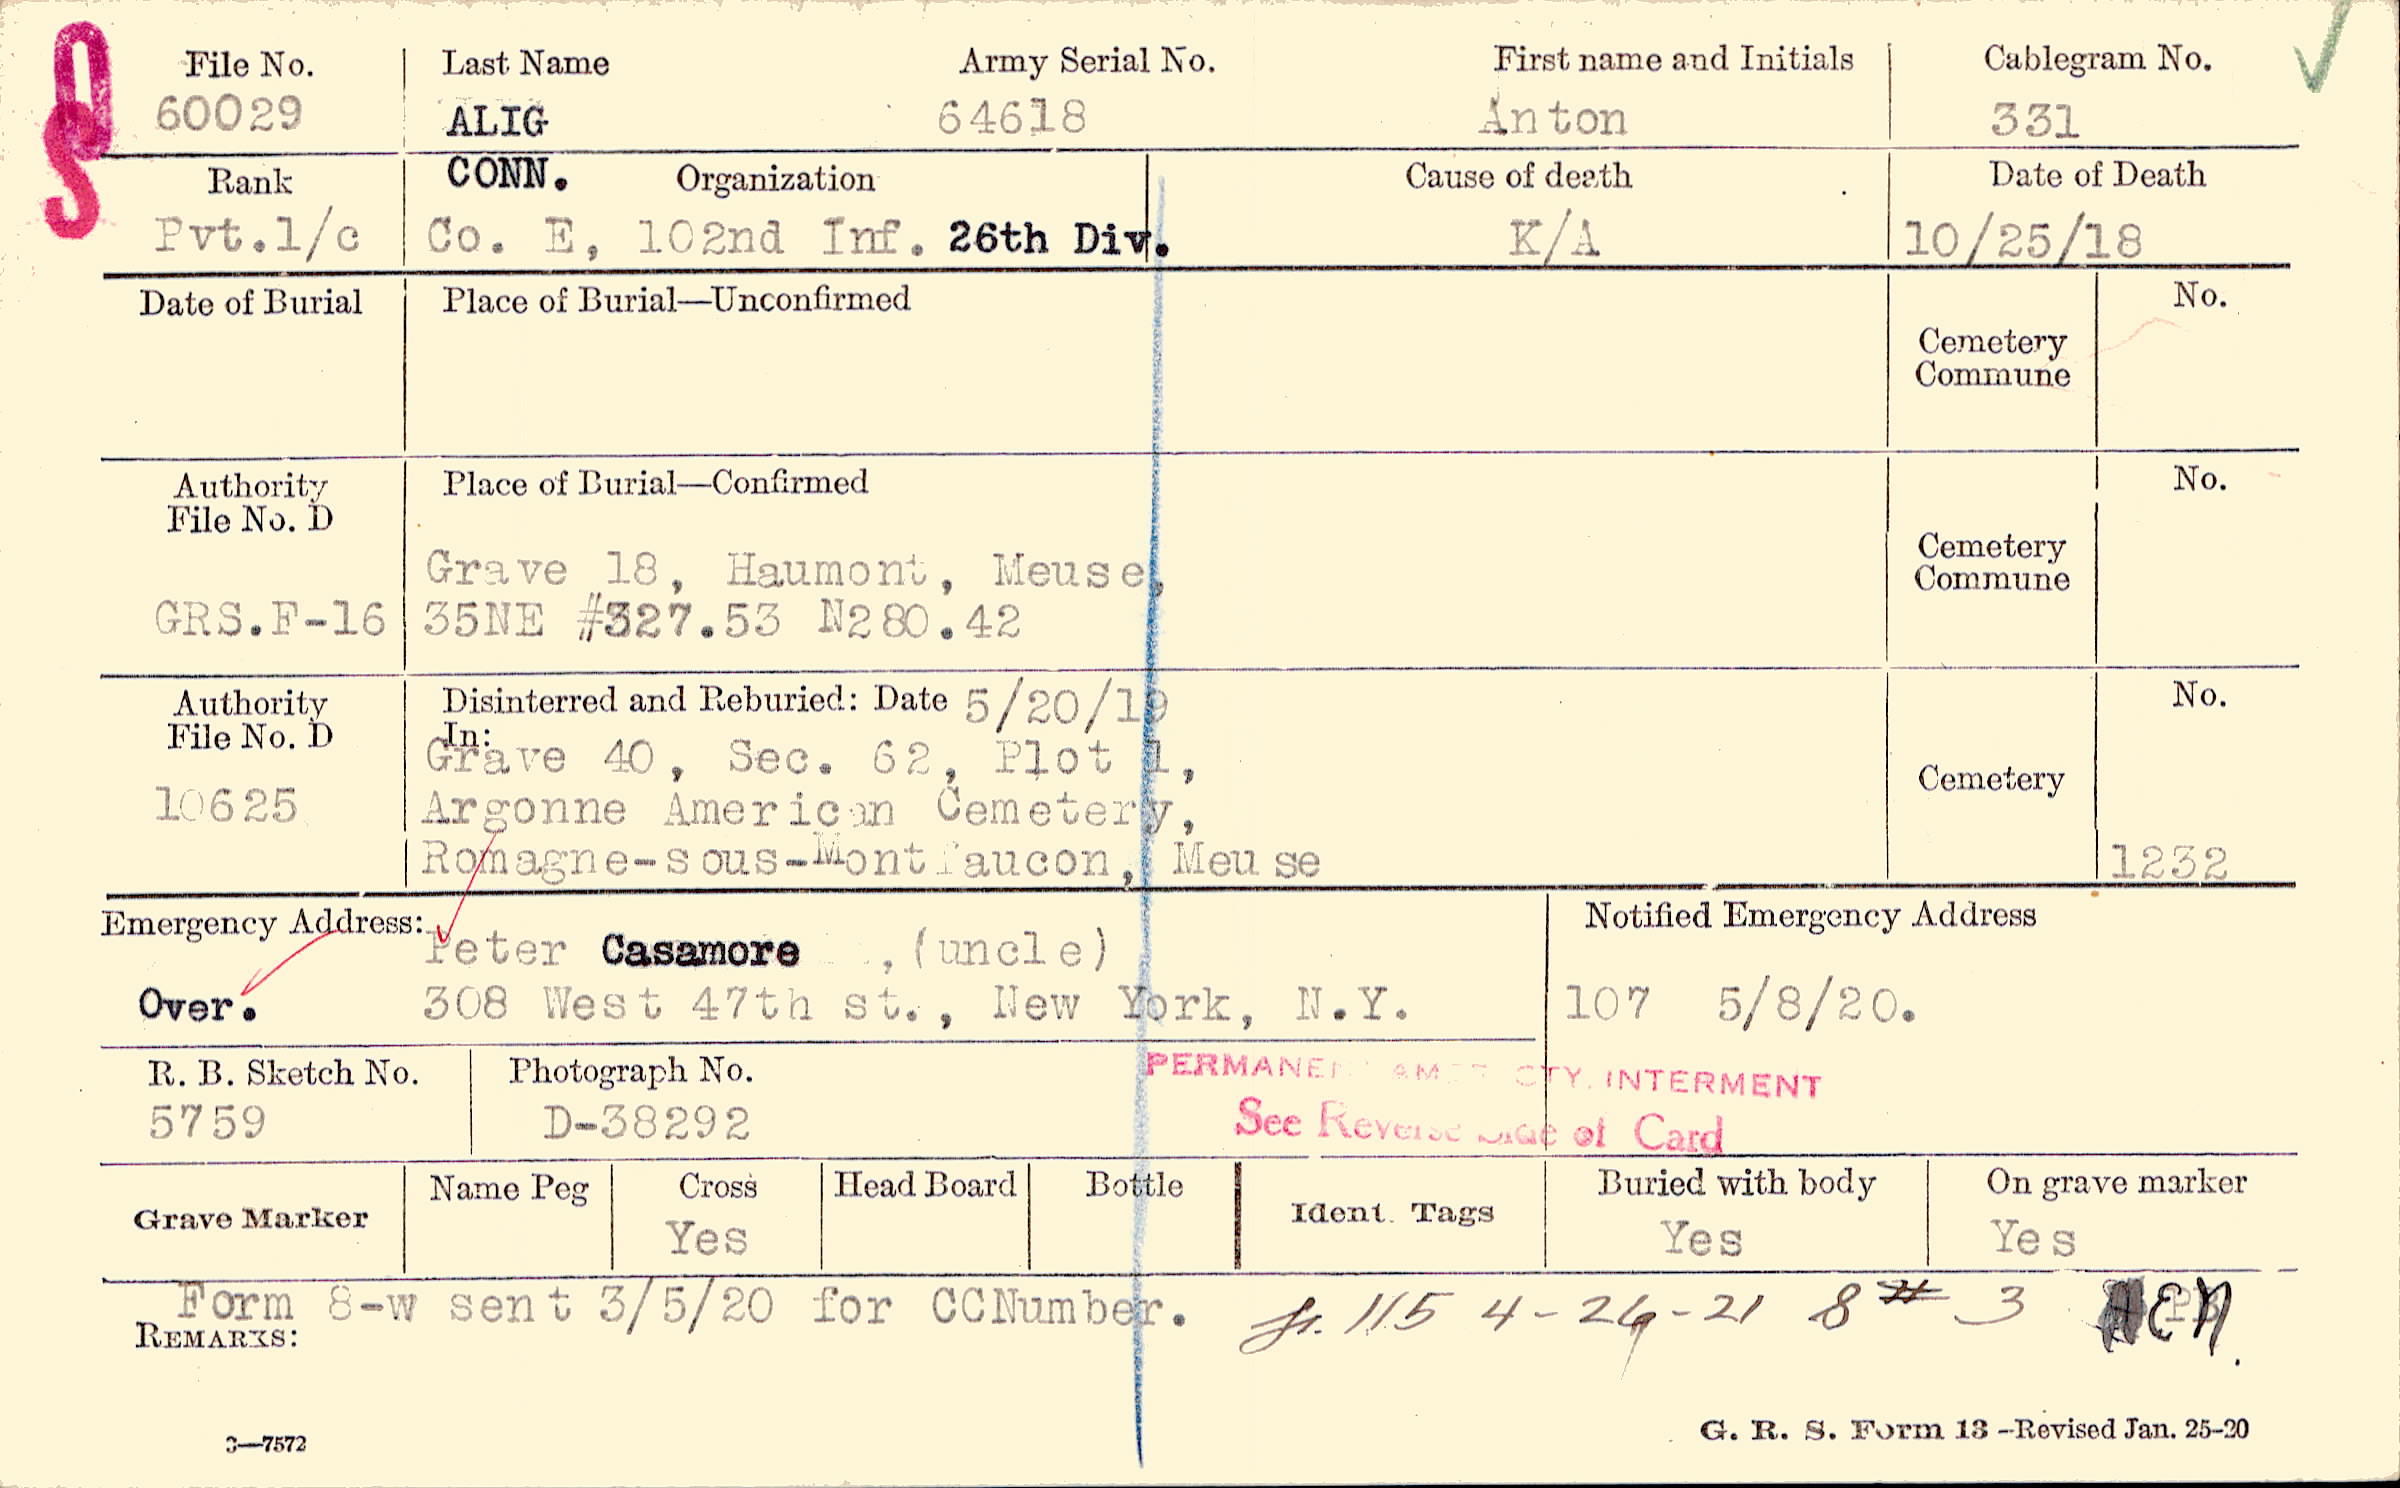 File No. Last Name Army Serial No. First name and Initials Cablegram No.
60029 ALIG 64618 Anton 331
Rank CONN. Organization Cause of death Date of Death
Pvt.1/c Co. E, 102nd Inf. 26th Div. K/A 10/25/18
Date of Burial Place of Burial—Unconfirmed No.
Cemetery
Commune
Authority Place of Burial—Confirmed No.
File No. D
Cemetery
Commune
Grave 18, Haumont, Meuse,
GRS.F-16 35NE #327.53 N280.42
Authority Disinterred and Reburied: Date 5/20/19 No.
File No. D In:
Grave 40, Sec. 62, Plot 1,
Cemetery
10625 Argonne American Cemetery,
Romagne-sous-Montfaucon, Meuse 1232
Emergency Address: Notified Emergency Address
Peter Casamore ,(uncle)
Over. 308 West 47th st., New York, N.Y. 107 5/8/20.
R. B. Sketch No. Photograph No.
5759 D-38292
PERMANENT AMER CTY. INTERMENT
See Reverse Side of Card
Grave Marker Name Peg Cross Head Board Bottle Ident. Tags Buried with body On grave marker
Yes Yes Yes
Form 8-w sent 3/5/20 for CCNumber. 115 4-26-21 8 3
REMARKS:
3—7572 G. R. S. Form 13 -Revised Jan. 25-20